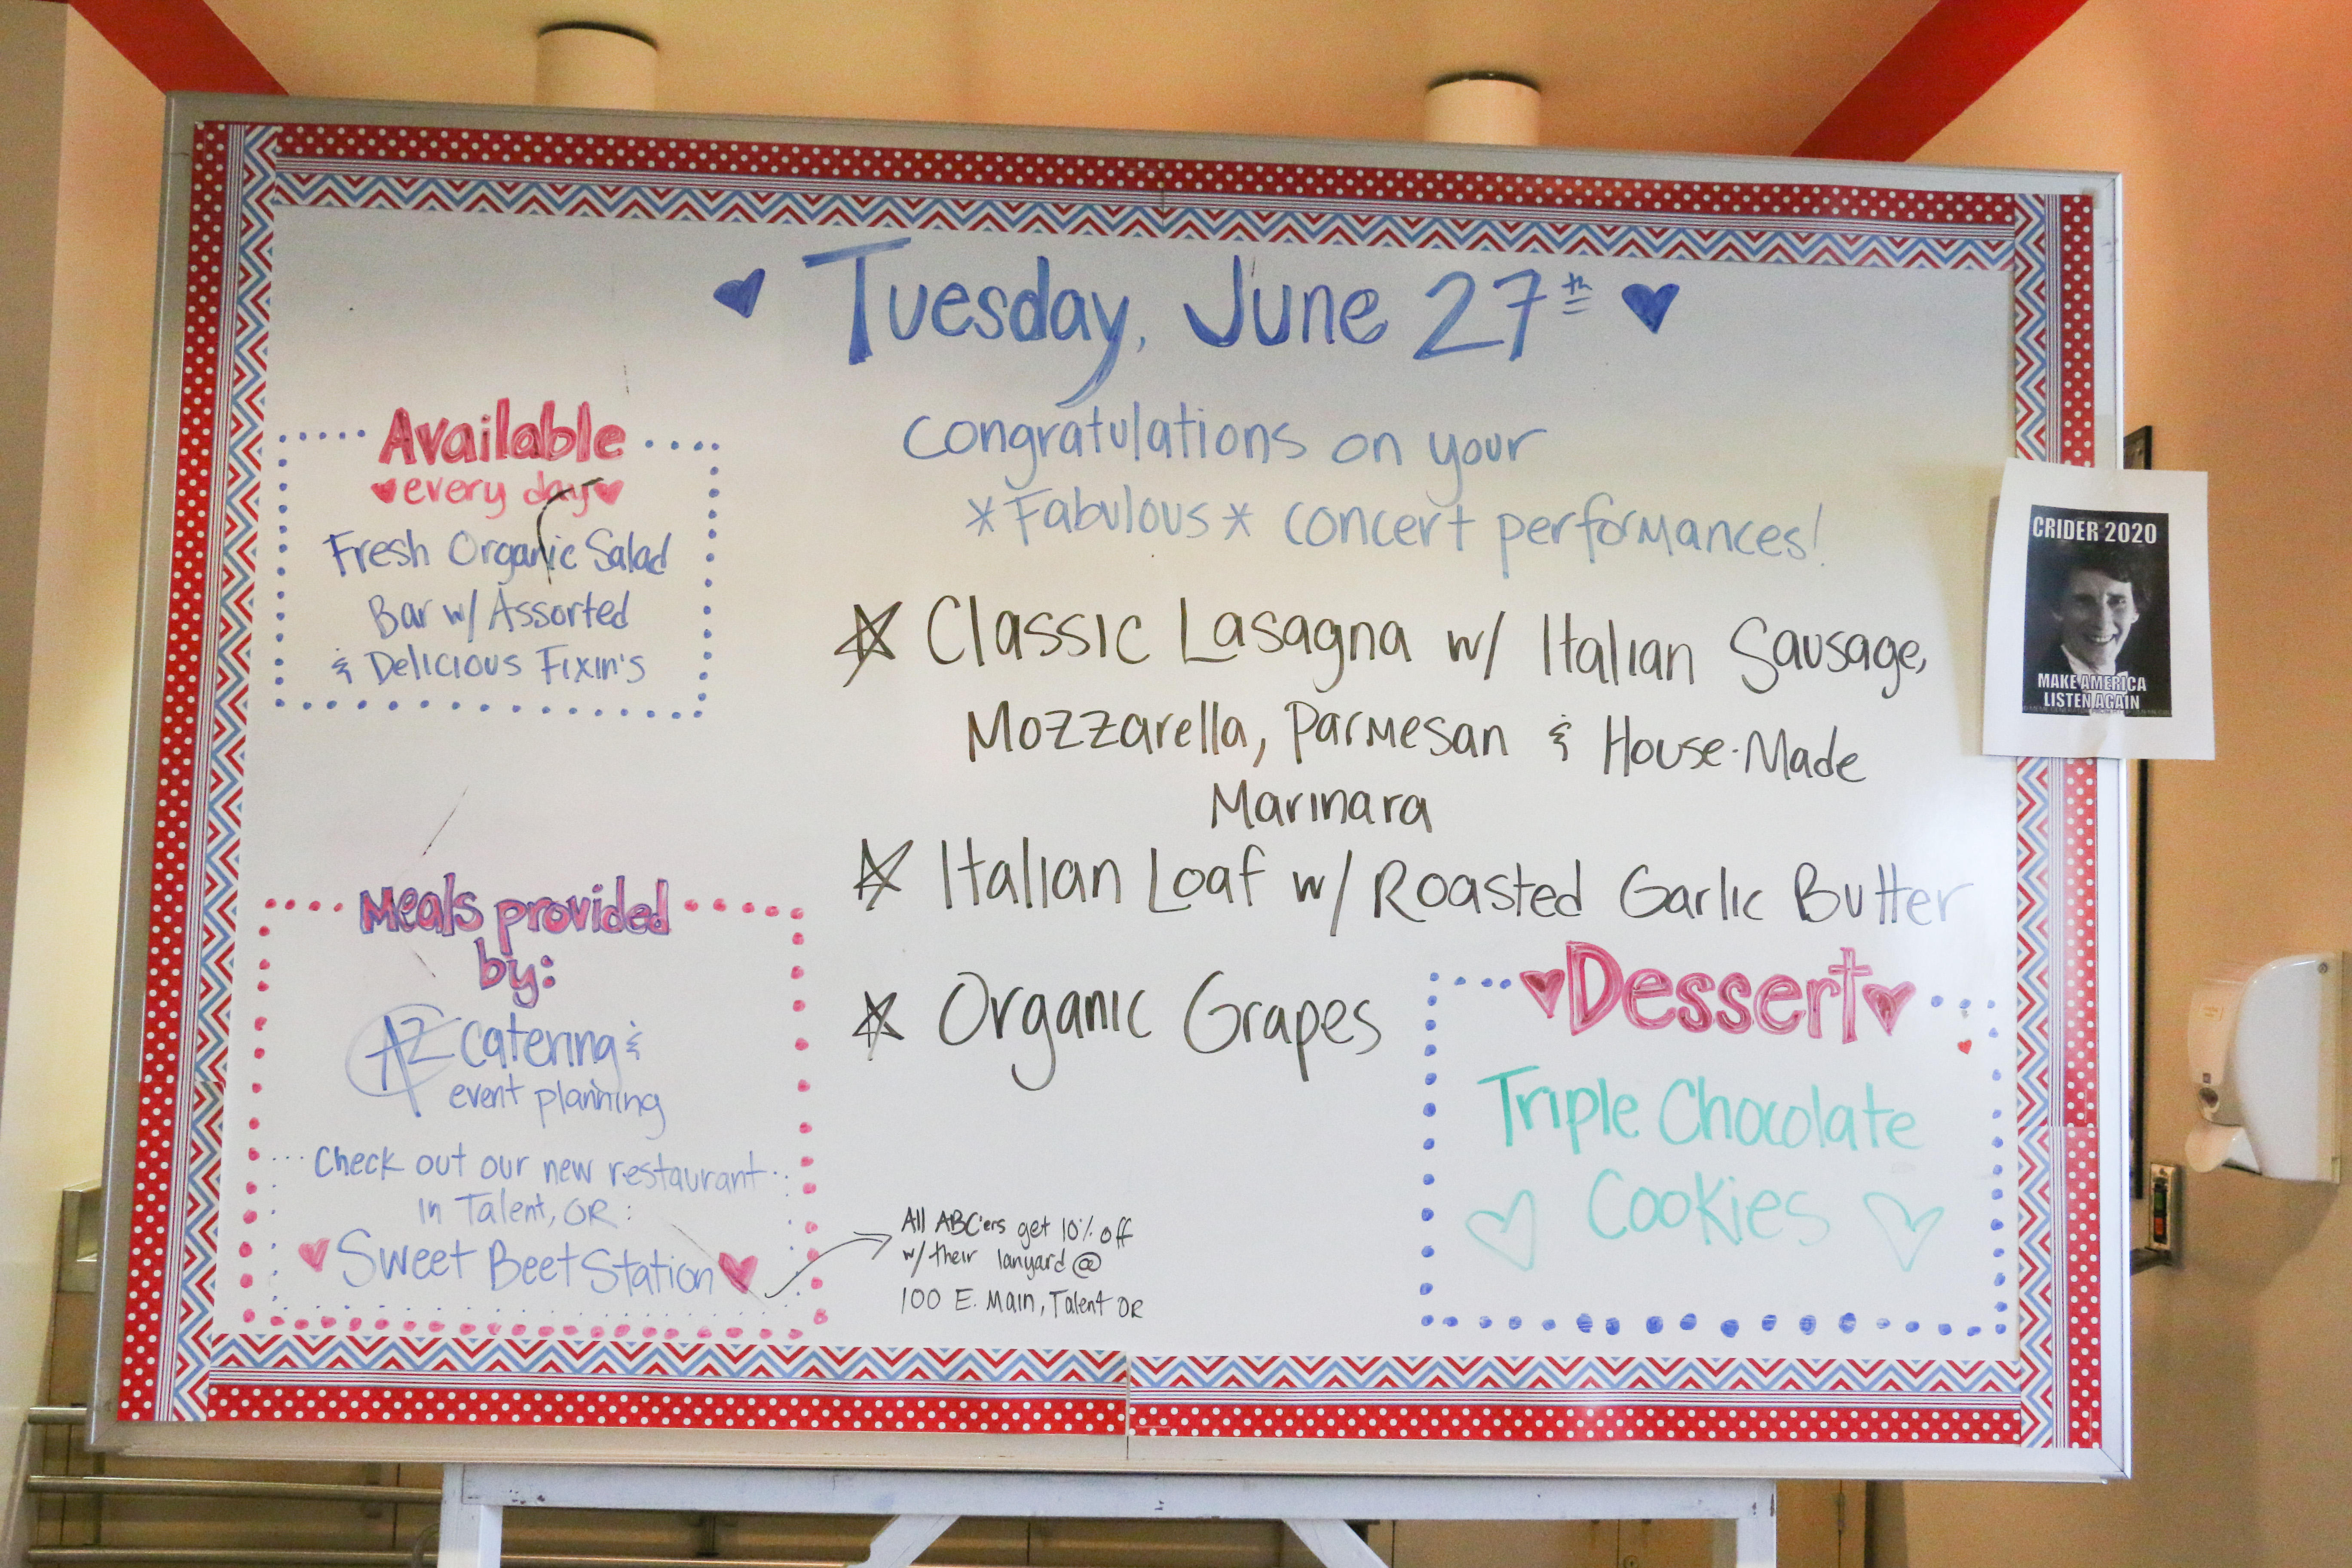 Tuesday, June 27th
Congratulations on your
*Fabulous* concert performances!
Available
every day
Fresh Organic Salad
Bar w/ Assorted
& Delicious Fixin's
Classic Lasagna w/ Italian Sausage,
Mozzarella, Parmesan & House-Made
Marinara
Italian Loaf w/ Roasted Garlic Butter
Organic Grapes
Meals provided
by:
AZ Catering &
event planning
Check out our new restaurant
in Talent, OR:
Sweet Beet Station
All ABC'ers get 10% off
w/ their lanyard @
100 E. Main, Talent OR
Dessert
Triple Chocolate
Cookies
CRIDER 2020
MAKE AMERICA
LISTEN AGAIN